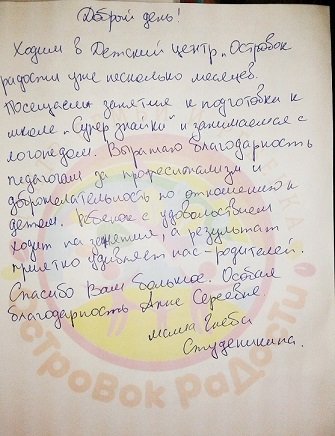 Добрый день!
Ходим в Детский центр „Островок
радости уже несколько месяцев.
Посещаем занятие к подготовки к
школе „Супер знайки" и занимаемся с
логопедом. Выражаю благодарность
педагогам за професионализм и
доброжелательность по отношению к
детям. Ребёнок с удовольствием
ходит на занятия, а результат
приятно удивляет нас - родителей.
Спасибо Вам большое. Особая
благодарность Анне Сергеевне.
мама Глеба
Студеникина.
островок радости